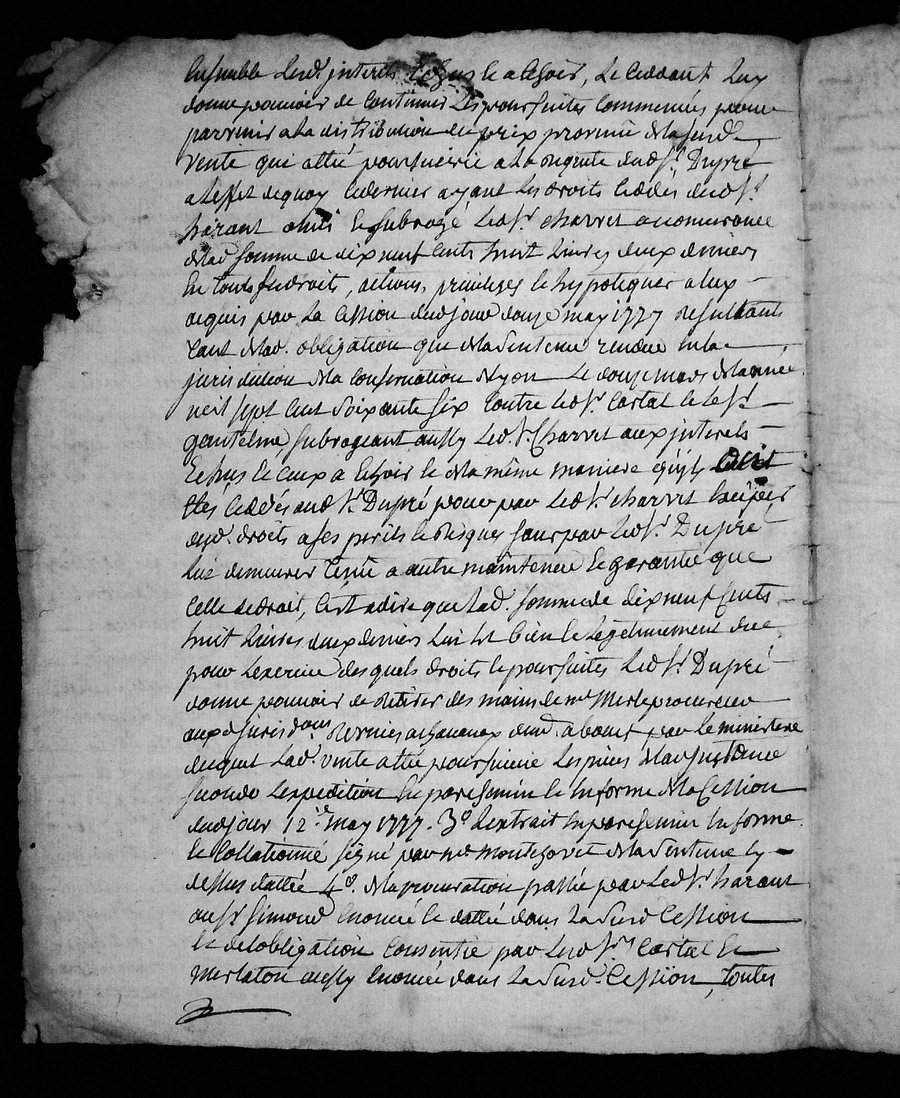 Ensemble lesd. interets Echus et a Echoir, Le Ceddant luy
donne pouvoir de Continuer Les poursuittes Commencées pour
parvenir a La distribution du prix provenu de la susd.
vente qui a été poursuivie a La requete dud. Sr. Dupré
a L'effet de quoy Ce dernier ayant les droits Cédés dud. Sr.
harant a mis et subrogé, Led. Sr. Charret a concurrance
de lad. somme de dix neuf Cents huit Livres deux deniers
En touts ses droits, actions, privileges et hypoteques a luy
acquis par La Cession dud. jour douze may 1777 Resultants
tant de lad. obligation que de la Sentence rendue En la
jurisdiction de la Conservation de Lyon Le douze mars de l'année
mil sept Cent soixante six Contre Led. Sr. Cartal et le Sr.
gentelme, subrogeant aussy Led. Sr. Charret aux interets
Echus et Ceux a Echoir et de la même maniere qu'ils
ttes Cédés aud. Sr. Dupré pour par Led. Sr. Charret
desd. droits a ses perils et Risques sans par Led. Sr. Dupré
lui demeurer tenu a autre maintenue et garantie que
Celle de droit, C'est a dire que Lad. somme de dix neuf Cents
huit Livres deux deniers Lui est bien et Légitimement due
pour L'exercice des quels droits et poursuites Led. Sr. Dupré
donne pouvoir de Retirer des mains de me. Merle procureur
aux d. jurisd.ons par Le ministere
duquel Lad. vente a été poursuivie Les pieces de lad. instance
secondo L'expedition En parchemin et En forme de la Cession
dud. jour 12e. may 1777. 3o. L'extrait En parchemin En forme
et Collationné signé par me. montegovet de la Sentence cy
dessus dattée 4o. de la procuration passée par Led. Sr. harant
au Sr. Simond Enoncée et dattée dans La susd. Cession
Et de l'obligation Consentie par Lesd. Srs. Cartal et
merlaton aussy Enoncée dans La susd. Cession, toutes